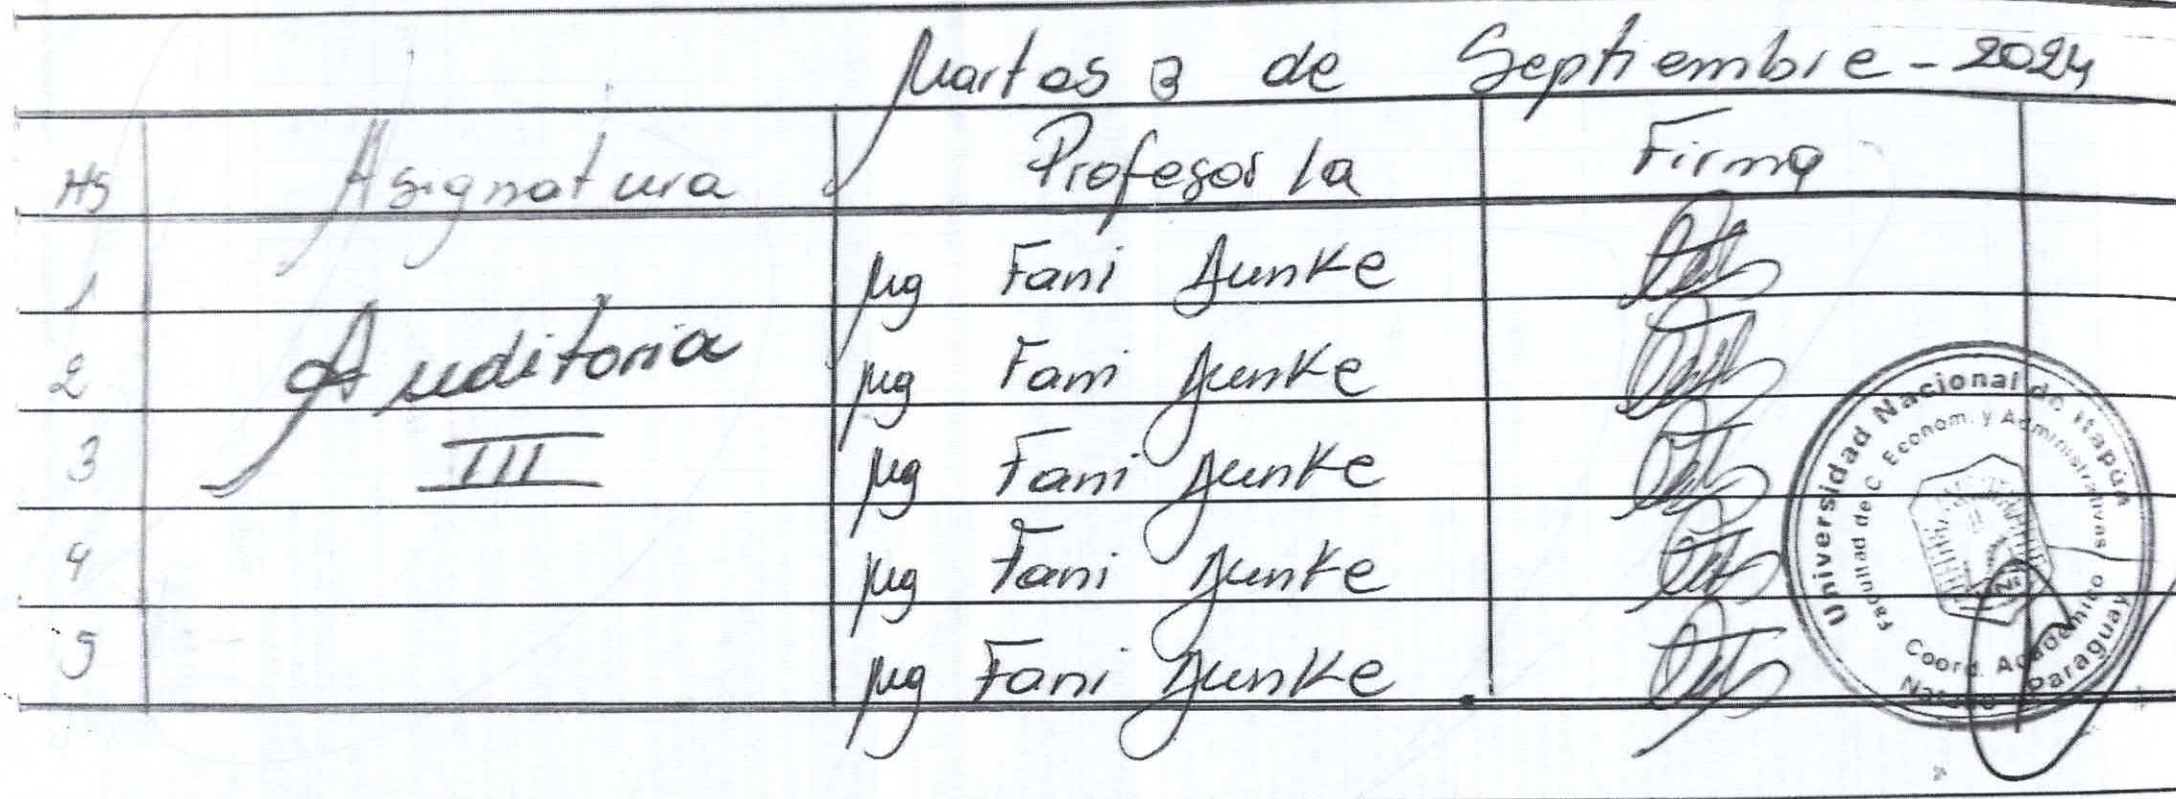 Martes 3 de Septiembre - 2024
HS Asignatura Profesor/a Firma
1 Mg Fani Junke
2 Auditoria Mg Fani Junke
3 III Mg Fani Junke
4 Mg Fani Junke
5 Mg Fani Junke
Universidad Nacional de Itapúa
Facultad de C. Econom. y Administrativas
Coord. Académico
Paraguay